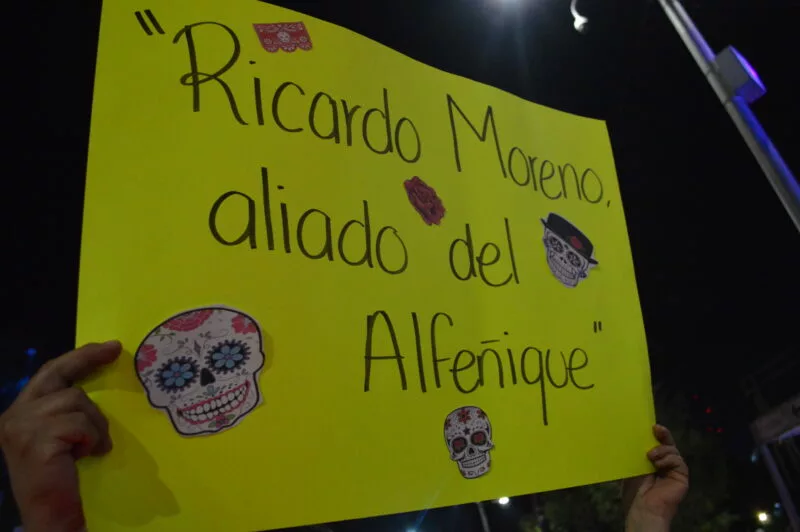 "Ricardo Moreno,
aliado del
Alfeñique"